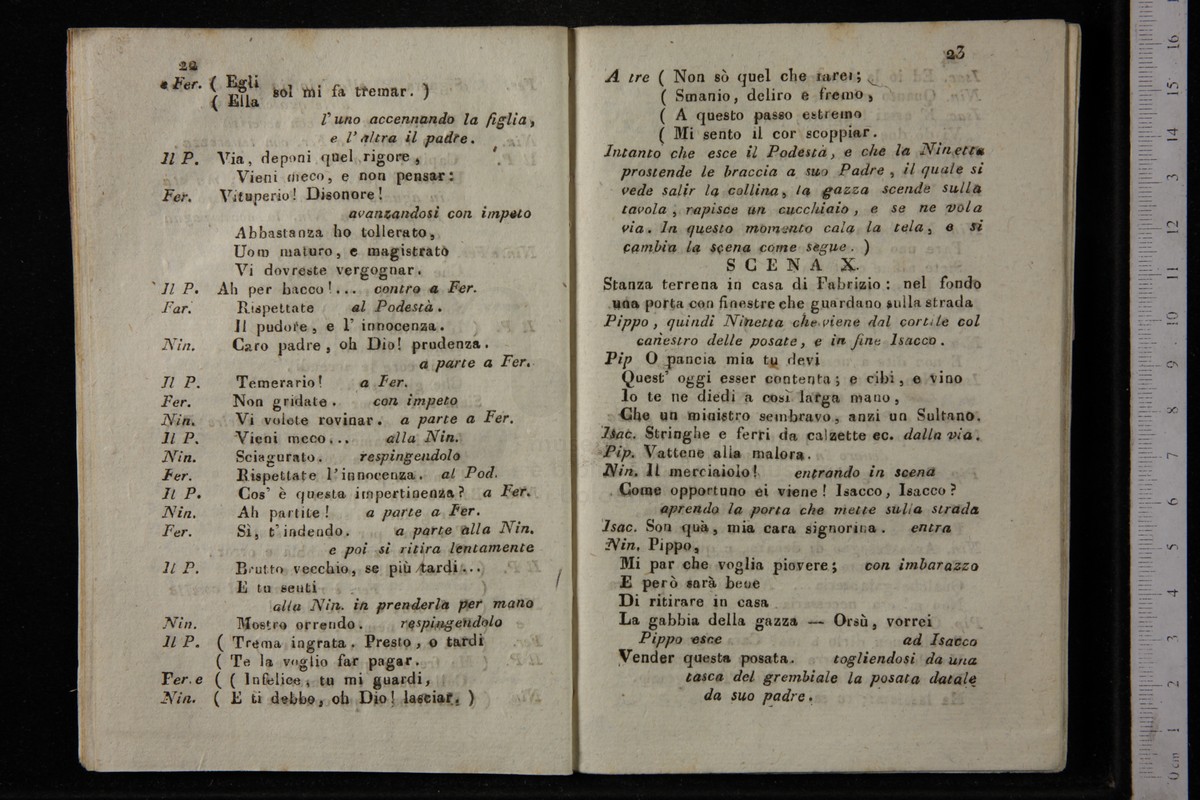 22
e Fer. ( Egli
( Ella
sol mi fa tremar. )
l'uno accennando la figlia,
e l'altra il padre.
Il P. Via, deponi quel rigore,
Vieni meco, e non pensar:
Fer. Vituperio! Disonore!
avanzandosi con impeto
Abbastanza ho tollerato,
Uom maturo, e magistrato
Vi dovreste vergognar.
Il P. Ah per bacco!... contro a Fer.
Far. Rispettate al Podestà.
Il pudore, e l' innocenza.
Nin. Caro padre, oh Dio! prudenza.
a parte a Fer.
Il P. Temerario! a Fer.
Fer. Non gridate. con impeto
Nin. Vi volete rovinar. a parte a Fer.
Il P. Vieni meco... alla Nin.
Nin. Sciagurato. respingendolo
Fer. Rispettate l'innocenza. al Pod.
Il P. Cos' è questa impertinenza? a Fer.
Nin. Ah partite! a parte a Fer.
Fer. Sì, t'indendo. a parte alla Nin.
e poi si ritira lentamente
Il P. Brutto vecchio, se più tardi...
E tu senti
alla Nin. in prenderla per mano
Nin. Mostro orrendo. respingendolo
Il P. ( Trema ingrata. Presto, o tardi
( Te la voglio far pagar.
Fer. e ( ( Infelice, tu mi guardi,
Nin. ( E ti debbo, oh Dio! lasciar. )
23
A tre ( Non sò quel che farei;
( Smanio, deliro e fremo,
( A questo passo estremo
( Mi sento il cor scoppiar.
Intanto che esce il Podestà, e che la Ninetta
prostende le braccia a suo Padre, il quale si
vede salir la collina, la gazza scende sulla
tavola, rapisce un cucchiaio, e se ne vola
via. In questo momento cala la tela, e si
cambia la scena come segue. )
SCENA X.
Stanza terrena in casa di Fabrizio: nel fondo
una porta con finestre che guardano sulla strada
Pippo, quindi Ninetta che viene dal cortile col
canestro delle posate, e in fine Isacco.
Pip O pancia mia tu devi
Quest' oggi esser contenta; e cibi, e vino
Io te ne diedi a così larga mano,
Che un ministro sembravo, anzi un Sultano.
Isac. Stringhe e ferri da calzette ec. dalla via.
Pip. Vattene alla malora.
Nin. Il merciaiolo! entrando in scena
Come opportuno ei viene! Isacco, Isacco?
aprendo la porta che mette sulla strada
Isac. Son quà, mia cara signorina. entra
Nin. Pippo,
Mi par che voglia piovere; con imbarazzo
E però sarà bene
Di ritirare in casa
La gabbia della gazza — Orsù, vorrei
Pippo esce ad Isacco
Vender questa posata. togliendosi da una
tasca del grembiale la posata datale
da suo padre.